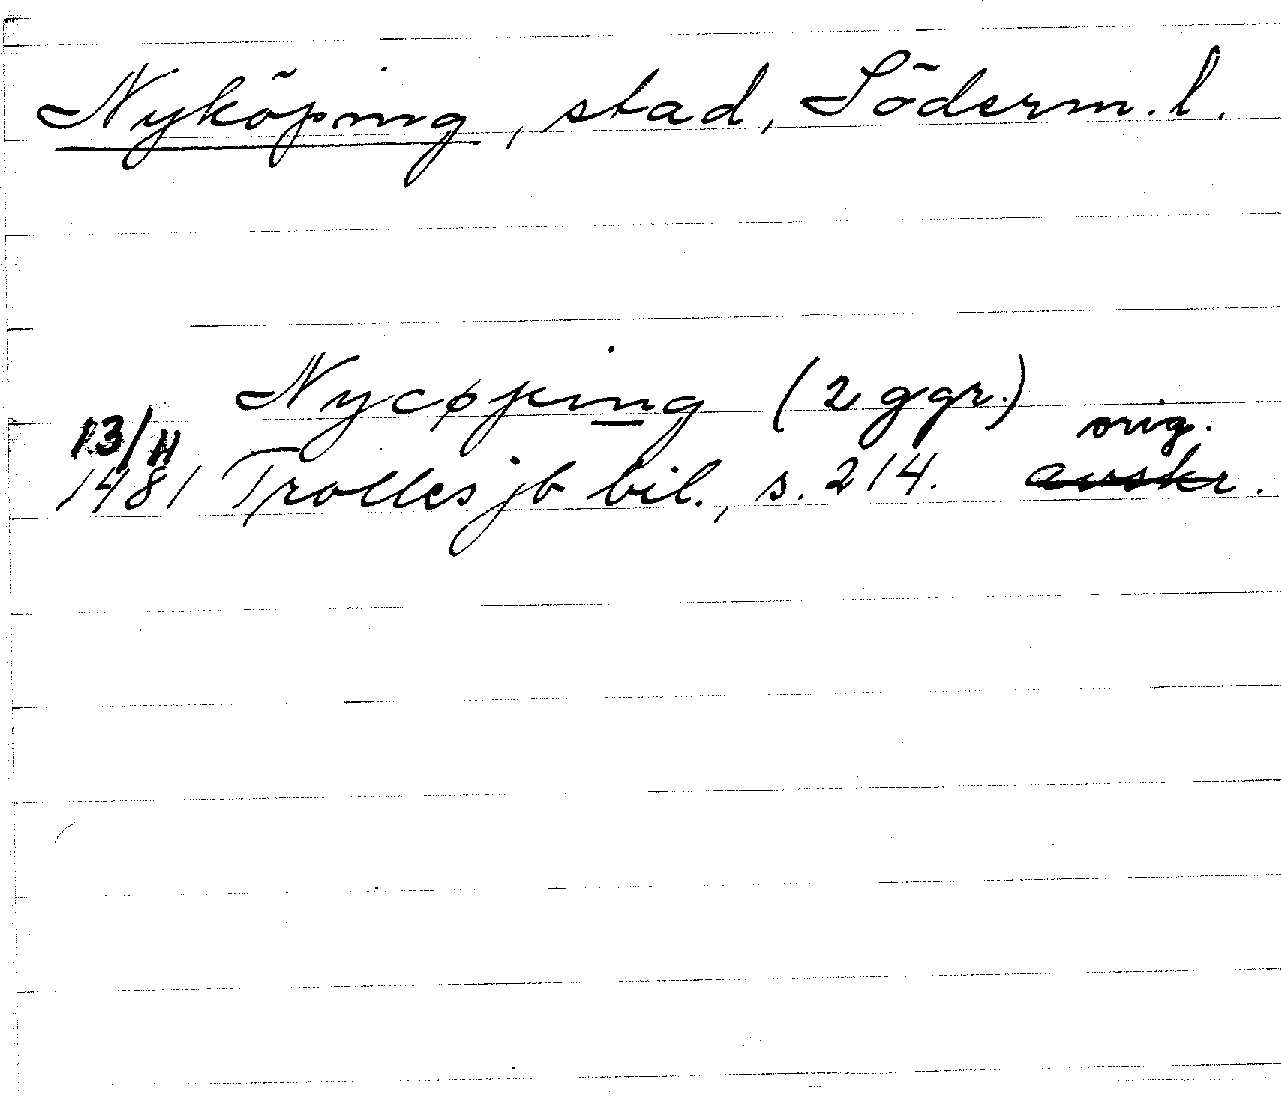 Nyköping, stad, Söderm. l.
Nycøping (2 ggr.)
13/11 orig.
1481 Trolles jb bil., s. 214. avskr.